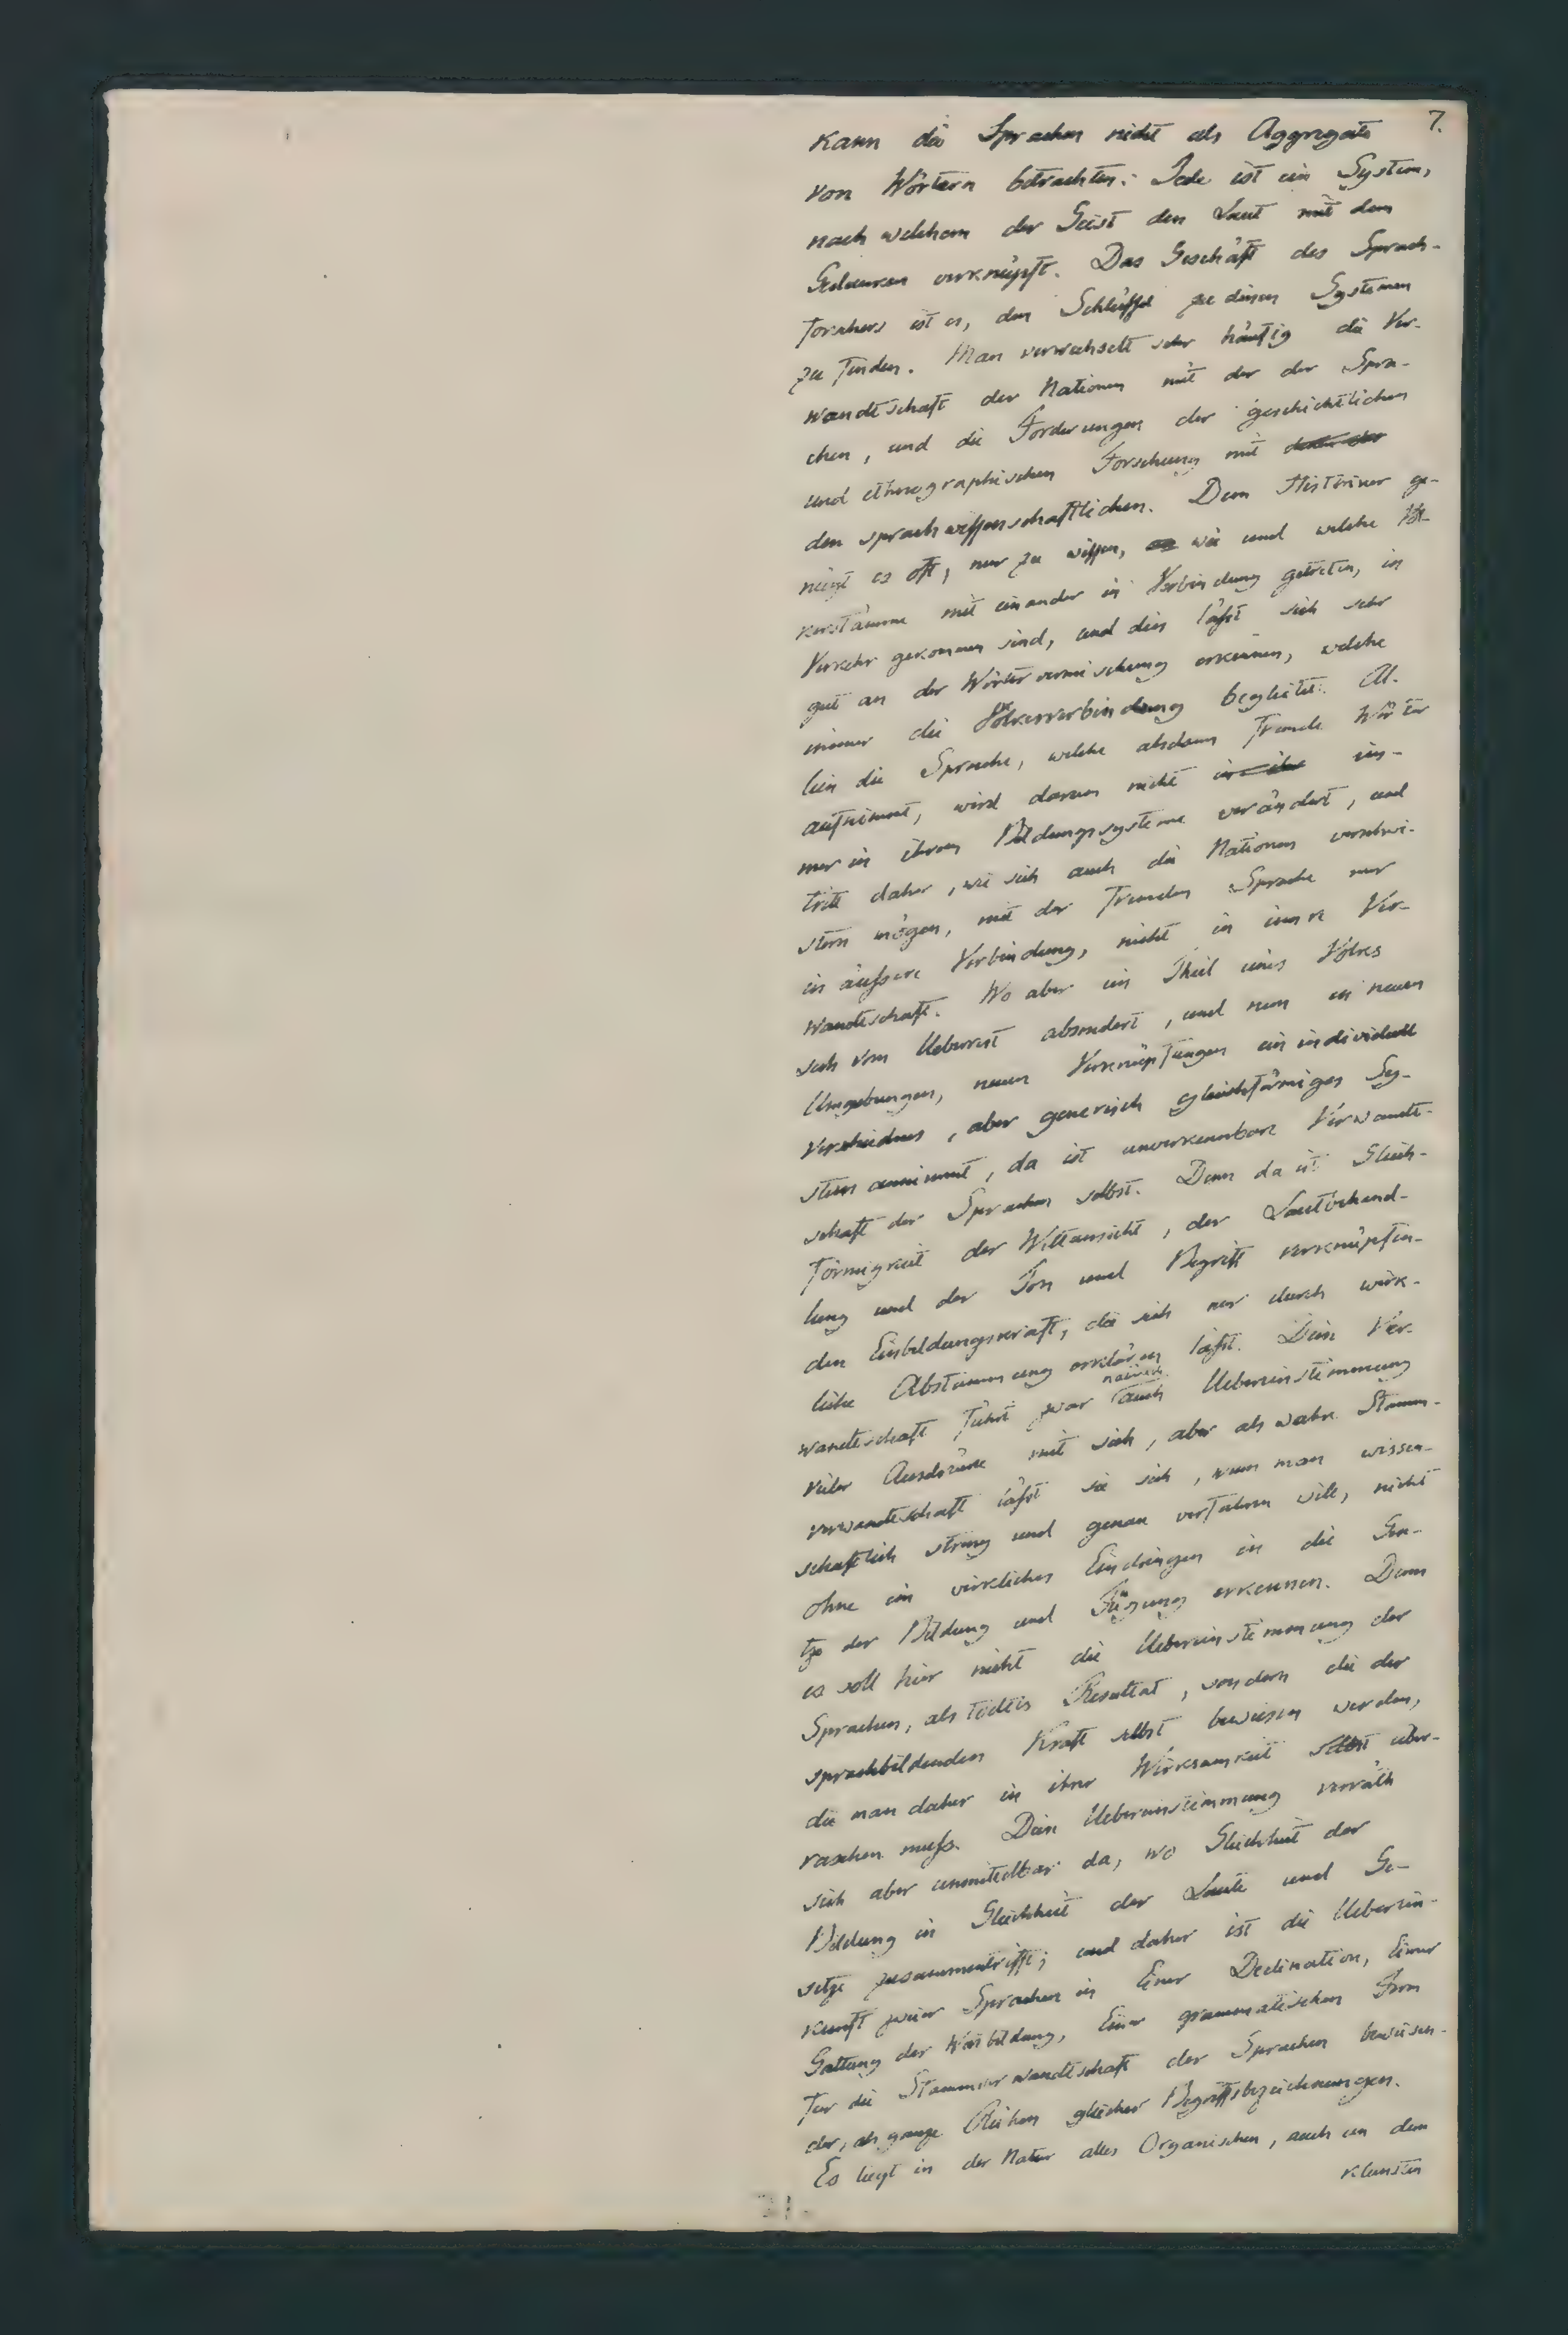 7.
kann die Sprachen nicht als Aggregate
von Wörtern betrachten. Jede ist ein System,
nach welchem der Geist den Laut mit dem
Gedanken verknüpft. Das Geschäft des Sprach-
forschers ist es, den Schlüssel zu diesen Systemen
zu finden. Man verwechselt sehr häufig die Ver-
wandtschaft der Nationen mit der der Spra-
chen, und die Forderungen der geschichtlichen
und ethnographischen Forschung mit
den sprachwissenschaftlichen. Dem Historiker ge-
nügt es oft, nur zu wissen, wie und welche Völ-
kerstämme mit einander in Verbindung getreten, in
Verkehr gekommen sind, und dies läßt sich sehr
gut an der Wörtervermischung erkennen, welche
immer die Völkerverbindung begleitet. Al-
lein die Sprache, welche alsdann fremde Wörter
aufnimmt, wird darum nicht in ihr im-
mer in ihrem Bildungssysteme verändert, und
tritt daher, wie sich auch die Nationen verschwi-
stern mögen, mit der fremden Sprache nur
in äußere Verbindung, nicht in innre Ver-
wandtschaft. Wo aber ein Theil eines Volkes
sich vom Ueberrest absondert, und nun in neuen
Umgebungen, neuen Verknüpfungen ein individuell
verschiednes, aber generisch gleichförmiges Sy-
stem annimmt, da ist unverkennbare Verwandt-
schaft der Sprachen selbst. Denn da ist Gleich-
förmigkeit der Weltansicht, der Lautbehand-
lung und der Ton und Begriff verknüpfen-
den Einbildungskraft, die sich nur durch wirk-
liche Abstammung erklären läßt. Diese Ver-
wandtschaft führt zwar auch Uebereinstimmung
vieler Ausdrücke mit sich, aber als wahre Stamm-
verwandtschaft läßt sie sich, wenn man wissen-
schaftlich streng und genau verfahren will, nicht
ohne ein wirkliches Eindringen in die Gese-
tze der Bildung und Fügung erkennen. Denn
es soll hier nicht die Uebereinstimmung der
Sprachen, als todtes Resultat, sondern die der
sprachbildenden Kraft selbst bewiesen werden,
die man daher in ihrer Wirksamkeit selbst über-
raschen muß. Diese Uebereinstimmung verräth
sich aber unmittelbar da, wo Gleichheit der
Bildung in Gleichheit der Laute und Ge-
setze zusammentrifft; und daher ist die Ueberein-
kunft zweier Sprachen in Einer Declination, Einer
Gattung der Wortbildung, Einer grammatischen Form
für die Stammverwandtschaft der Sprachen beweisen-
der, als ganze Reihen gleicher Begriffsbezeichnungen.
Es liegt in der Natur alles Organischen, auch an dem
kleinsten